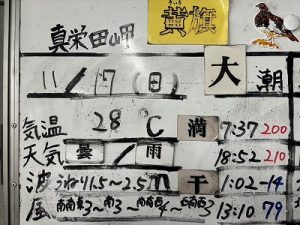 真栄田岬 黄旗
11/17(日) 大潮
気温 28℃ 満 7:37 200
天気 曇/雨 18:52 210
波 うねり1.5~2.5m 干 1:02 -14
風 南南東3~南3~南南西4~ 13:10 79